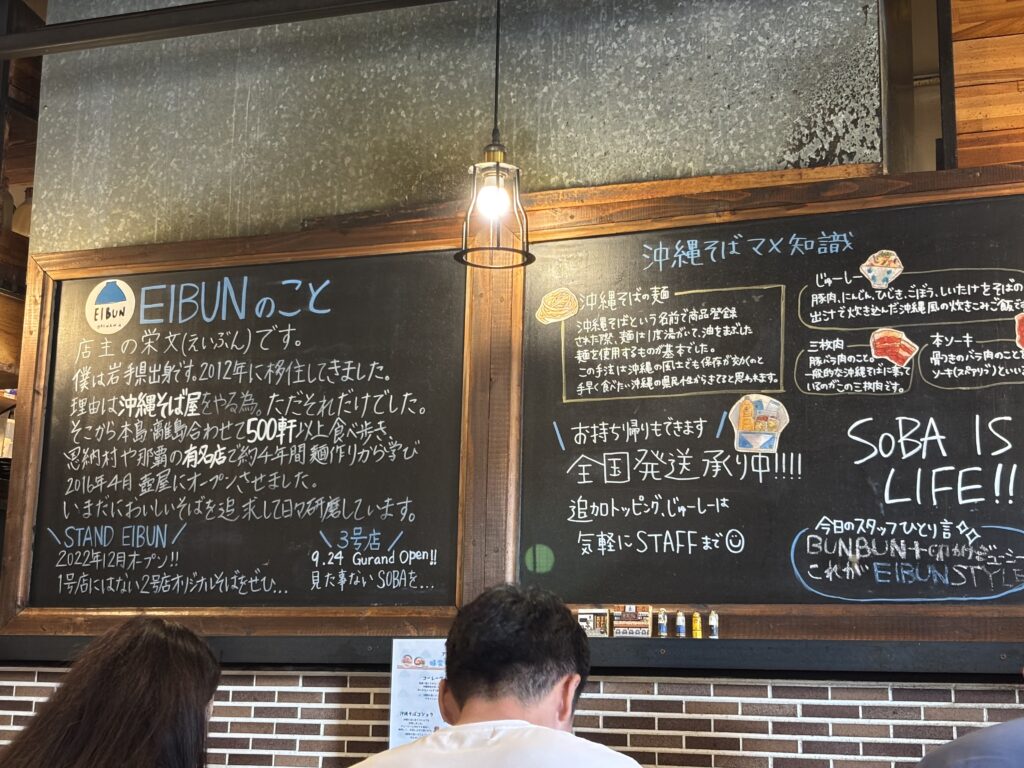 EIBUN
OKINAWA
EIBUNのこと
店主の栄文(えいぶん)です。
僕は岩手県出身です。2012年に移住してきました。
理由は沖縄そば屋をやる為。ただそれだけでした。
そこから本島・離島合わせて500軒以上食べ歩き
恩納村や那覇の有名店で約4年間麺作りから学び
2016年4月 壺屋にオープンさせました。
いまだにおいしいそばを追求して日々研磨しています。
STAND EIBUN
2022年12月オープン!!
1号店にはない2号店オリジナルそばをぜひ...
3号店
9.24 Gurand Open!!
見た事ないSOBAを...
沖縄そばマメ知識
沖縄そばの麺
沖縄そばという名前で商品登録
された際、麺は1度湯がいて、油をまぶした
麺を使用するものが基本でした。
この手法は沖縄の風土でも保存が効くのと
手早く食べたい沖縄の県民性からきてると思われます。
じゅーしー
豚肉、にんじん、ひじき、ごぼう、しいたけをそばの
出汁で炊き込んだ沖縄風の炊きこみご飯で
三枚肉
豚バラ肉のこと。
一般的な沖縄そばに乗って
いるのがこの三枚肉です。
本ソーキ
骨つきのバラ肉のこと
ソーキ(スペアリブ)といい
お持ち帰りもできます
全国発送承り中!!!!
追加トッピング、じゅーしーは
気軽にSTAFFまで
SOBA IS
LIFE!!
今日のスタッフひとり言
BUNBUN
これが EIBUN STYLE